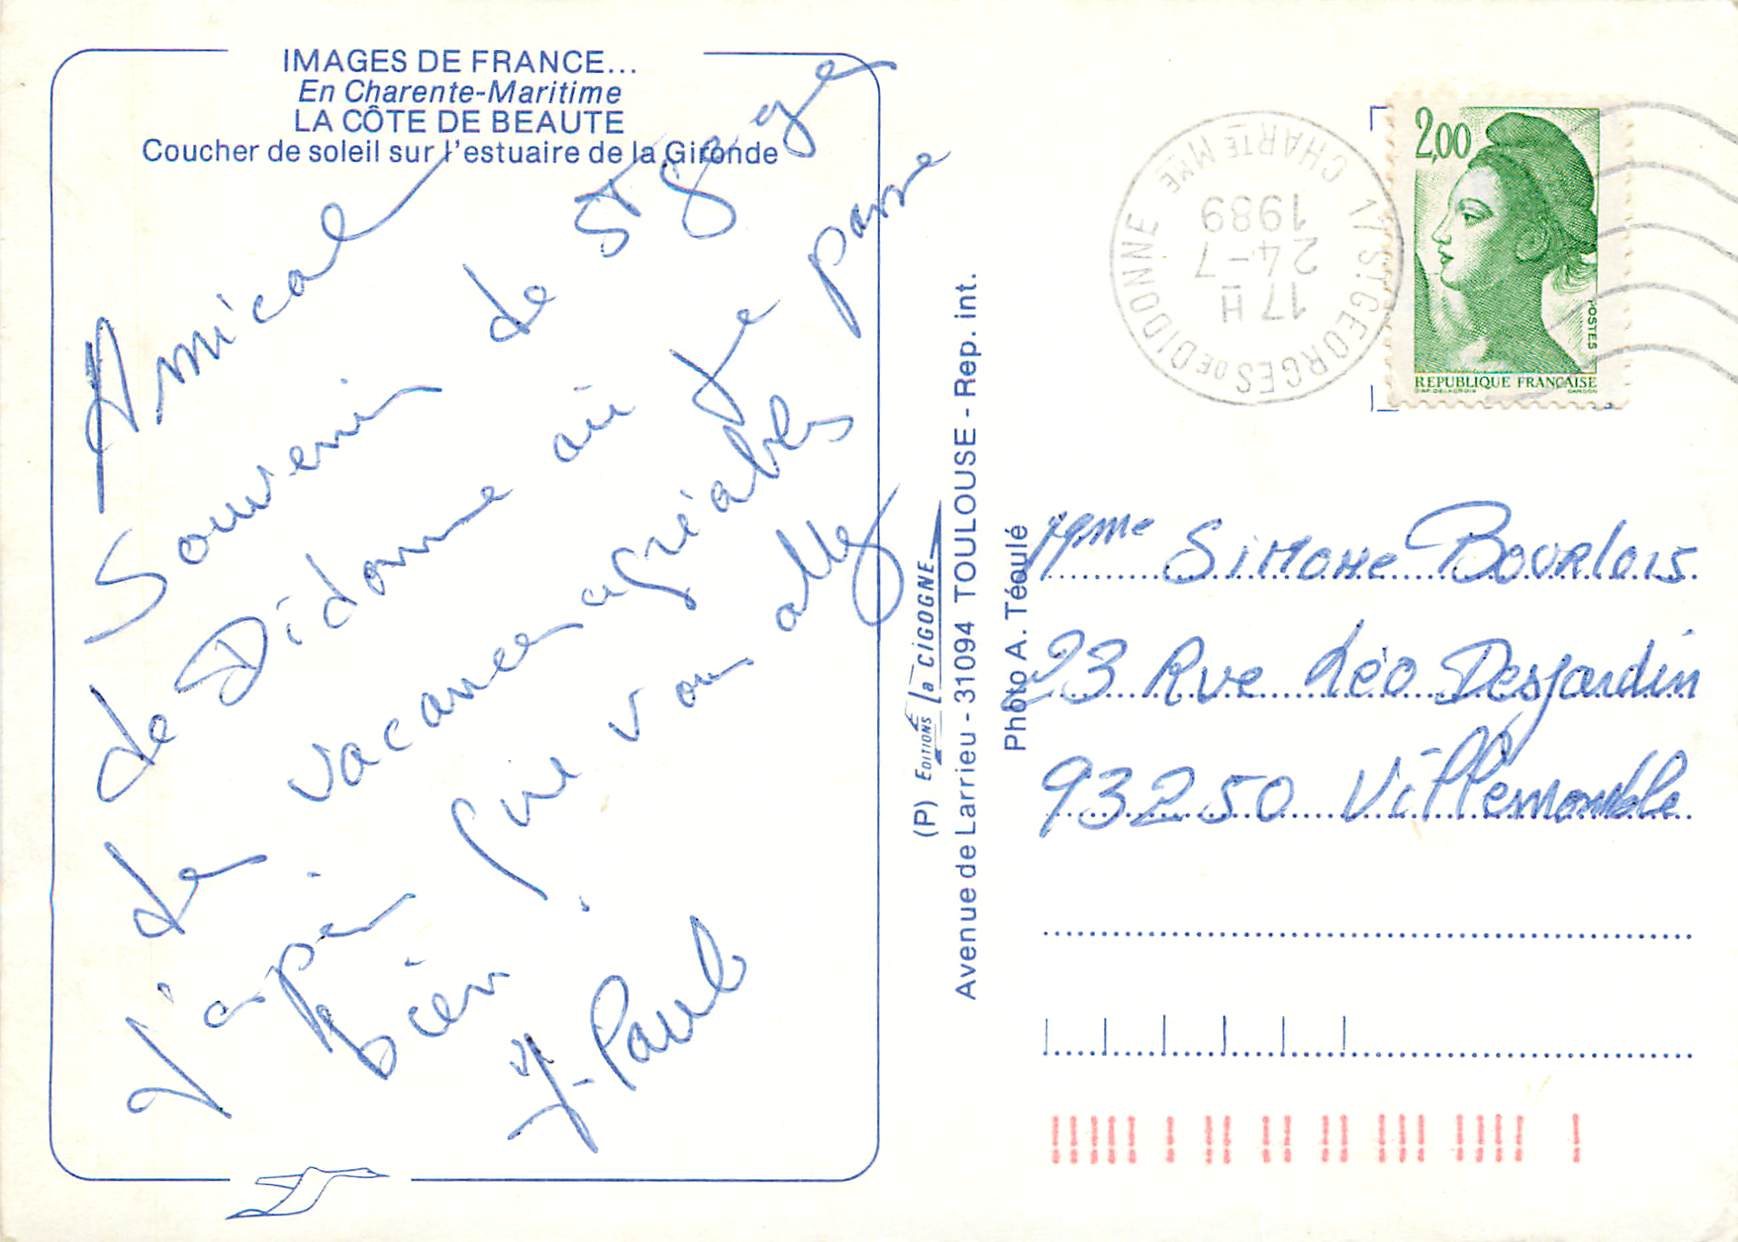 IMAGES DE FRANCE...
En Charente-Maritime
LA CÔTE DE BEAUTE
Coucher de soleil sur l'estuaire de la Gironde
Amical
Souvenir de St Geoges
de Didonne où je passe
de vacances agréables
J'espère que vous allez
bien.
J-Paul
(P) EDITIONS La CIGOGNE
Avenue de Larrieu - 31094 TOULOUSE - Rep. int.
Photo A. Téoulé
17 ST GEORGES DE DIDONNE CHARTE MME
17 H
24-7
1989
2,00
POSTES
REPUBLIQUE FRANÇAISE
D'AP. DELACROIX GANDON
Mme SiMONe BOURlOIS
23 Rue Léo Desjardin
93250 Villemomble